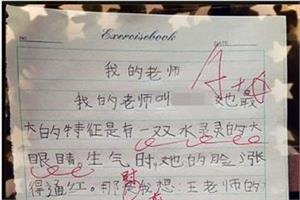 Exercisebook
DATE
A+
我的老师
我的老师叫 她最
大的特征是有一双水灵灵的大
眼睛。生气时,她的脸涨
时
得通红。那 我想:王老师的